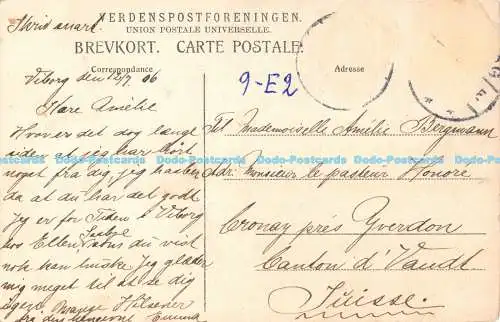 Skriv snart.
VERDENSPOSTFORENINGEN.
UNION POSTALE UNIVERSELLE.
BREVKORT. CARTE POSTALE.
Correspondance
Adresse
9-E2
Viborg den 12/7 06
Kære Amélie
Hvor er det dog længe
siden at jeg har hørt
noget fra dig, jeg haaber
da at du har det godt
Jeg er for Tiden i Viborg
hos Ellen du vist
nok kan huske. Jeg glæder
mig meget til at se dig
igen. Mange Hilsener
fra din Emma
Til Mademoiselle Amélie Bergmann
Adr: Monsieur le pasteur Honore
Cronay prés Yverdon
Canton d' Vaudt
Süisse.
Dodo-Postcards Dodo-Postcards Dodo-Postcards Dodo-Postcards Dodo-Postcards Dodo-Postcards